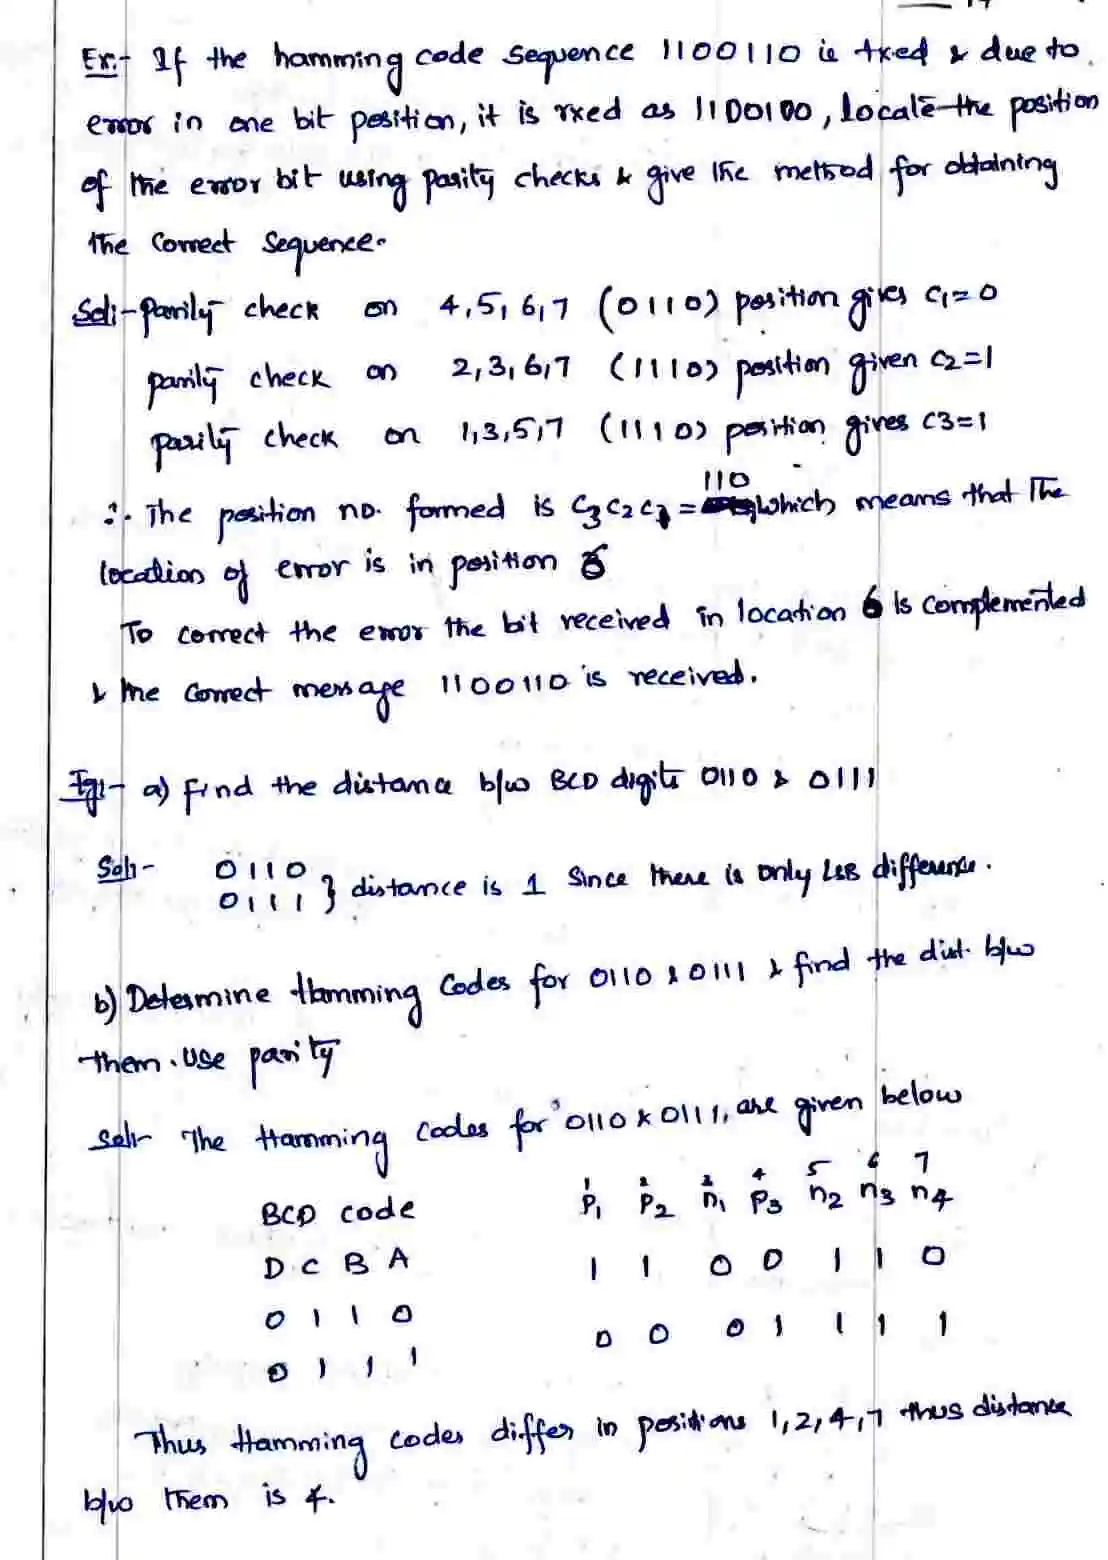 Ex:- If the hamming code sequence 1100110 is txed & due to
error in one bit position, it is rxed as 1100100, locate the position
of the error bit using parity checks & give the method for obtaining
the correct sequence.
Sol:- Parity check on 4,5,6,7 (0110) position gives C1=0
parity check on 2,3,6,7 (1110) position given C2=1
parity check on 1,3,5,7 (1110) position gives C3=1
∴ The position no. formed is C3C2C1 = 110 which means that the
location of error is in position 6
To correct the error the bit received in location 6 is complemented
& the correct message 1100110 is received.
Eg:- a) Find the distance b/w BCD digits 0110 & 0111
Sol:- 0110
0111 } distance is 1 Since there is only LSB difference.
b) Determine Hamming Codes for 0110 & 0111 & find the dist. b/w
them. Use parity
Sol:- The Hamming codes for 0110 & 0111, are given below
1 2 3 4 5 6 7
BCD code P1 P2 n1 P3 n2 n3 n4
D C B A 1 1 0 0 1 1 0
0 1 1 0 0 0 0 1 1 1 1
0 1 1 1
Thus Hamming codes differ in positions 1,2,4,7 thus distance
b/w them is 4.